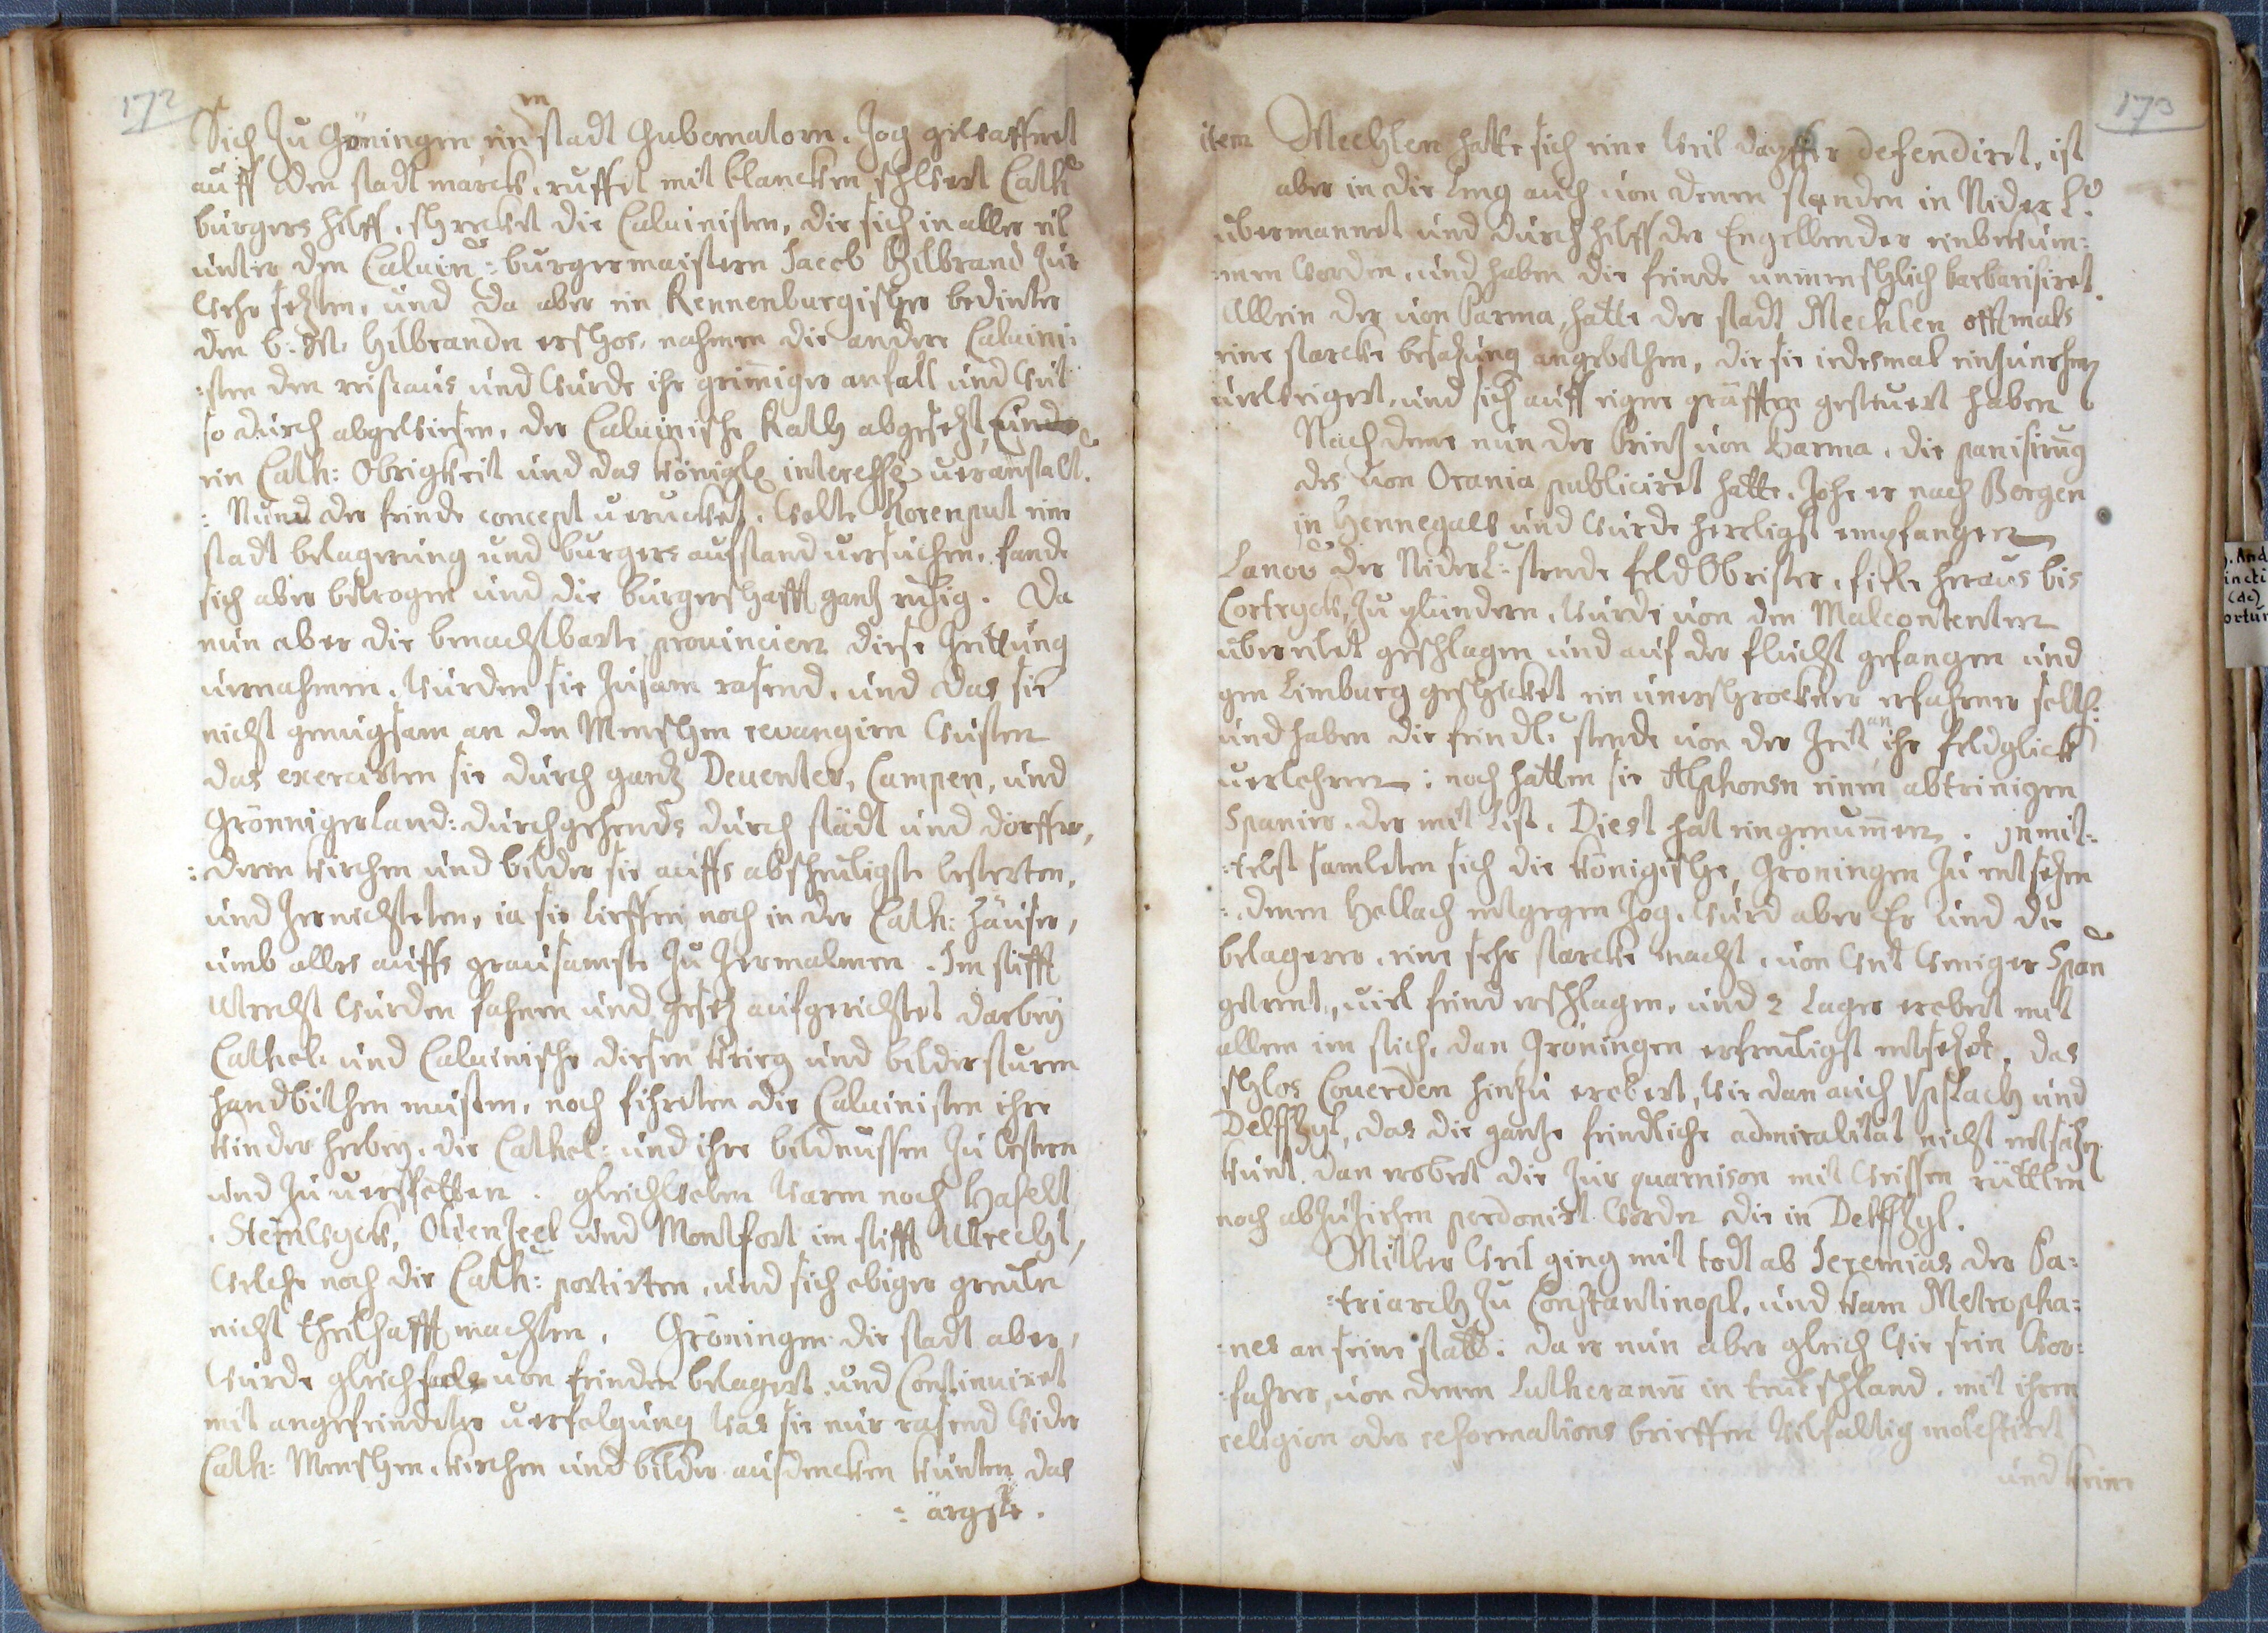 172
Sich zu Gröningen, ein stadt Gubernatorn. zog gewaffnet
auff den stadt marck. ruffet mit blancken schwert Cath:
burgers hilff. schrecket die Caluinisten, die sich in aller eil
unter den Caluin: burgermaistern Jacob Hilbrand zur
wehr sezten, und da aber ein Rennenburgischer bedinter
den b: M. Hilbranden erschos. nahmen die andern Caluini:
:sten den reisaus und wurde ihr grimiger anfall und wut
so durch abgewiesen, der Caluinische Rath abgesezt,
ein Cath: Obrigkeit und das königle interesse veranstalt.
: Nun der feinde concept veruckt, wolte Korenput eine
stadt belagerung und burgers aufstand versuchen. fande
sich aber betrogen und die burgerschafft gantz ruhig. Da
nun aber die benachtbarte prouincien diese Zeittung
vernahmen. wurden sie zusam rasend, und das sie
nicht genugsam an den Menschen revangirn wusten
das exercirten sie durch gantz Deuenter, Campen, und
Grönnigerland: durchgehends durch städt und dörffer,
:deren kirchen und bilder sie auffs abscheuligste lesterten,
und zernichteten, ia sie lieffen noch in der Cath: häuser,
umb alles auffs grausamste zu zermalmen. Im stifft
Utrecht wurden fahnen und gesez aufgerichtet darbey
Cathol: und Caluinische diesen krieg und bildersturm
handbithen musten, noch fihrten die Caluinisten ihre
kinder herbey. die Cathol: und ihre bildnussen zu lestern
und zu verspotten. gleichwoln waren noch Haselt
Steinwyck, Olienzeel und Montfort im stifft Utrecht,
welche noch die Cath: portirten, und sich obiger greuln
nicht theilhafft machten. Gröningen die stadt aber,
wurde gleichfals von feinden belagert und Continuiret
mit angefeindeter verfolgung was sie nur rasend wider
Cath: Menschen. kirchen und bilder ausdencken kunten das
: ärgste.
173
item Mechlen hatte sich eine weil dapffer defendiret, ist
aber in die leng auch von denen standen in Niderl:
ubermannet und durch hilff der Engellender einbekum:
:men worden. und haben die feinde unmenschlich barbarisiret.
Allein der von Parma, hatte der stadt Mechlen offtmals
eine starcke besazung angebothen, die sie iedesmal einzunehm
verweigert, und sich auff eigne gräfften gesteuert haben
Nach deme nun der Prinz von Parma. die panisirung
des von Orania publiciret hatte. zohe er nach Bergen
in Hennegau und wurde herrligst empfangen
Lanou der Niderl: stende feld Obrister. fiele heraus bis
Cortryck, zu plündern, wurde von den Malcontenten
ubereilet geschlagen und auf der flucht gefangen und
gen Limburg geschicket ein unerschrockner erfahrner soltd:
und haben die feindl: stende von der Zeit an ihr feldglick
verlohren: noch hatten sie Alphonsn einen abtrinigen
Spanier. der mit list. Diest hat eingenummen. Inmit:
:telst samleten sich die königische, Gröningen zu entsezen
:denen Hollach entgegen zog. wurd aber Er und die
belagerer. eine sehr starcke macht. von weit weniger Span
getrent, viel feind erschlagen, und 2 Lager erobert mit
allem im stich. dan Gröningen erfreuligst entsezet, das
schlos Couerden hinzu erobert, wie dan auch Vislach und
Delffzyl, das die gantze feindliche admiralitat nicht entsezn
kunt. dan erobert die zur quarnison mit weissen rüttlen
noch abzuziehen perdonirt worden die in Delffzyl.
Mitler weil ging mit todt ab Jeremias der Pa:
:triarch zu Constantinopl. und kam Metropha:
:nes an seine statt: da er nun aber gleich wie sein Vor:
:fahrer, von denen Lutheranern in teutschland. mit ihren
religion oder reformations brieffen vilfaltig molestiret
und keine